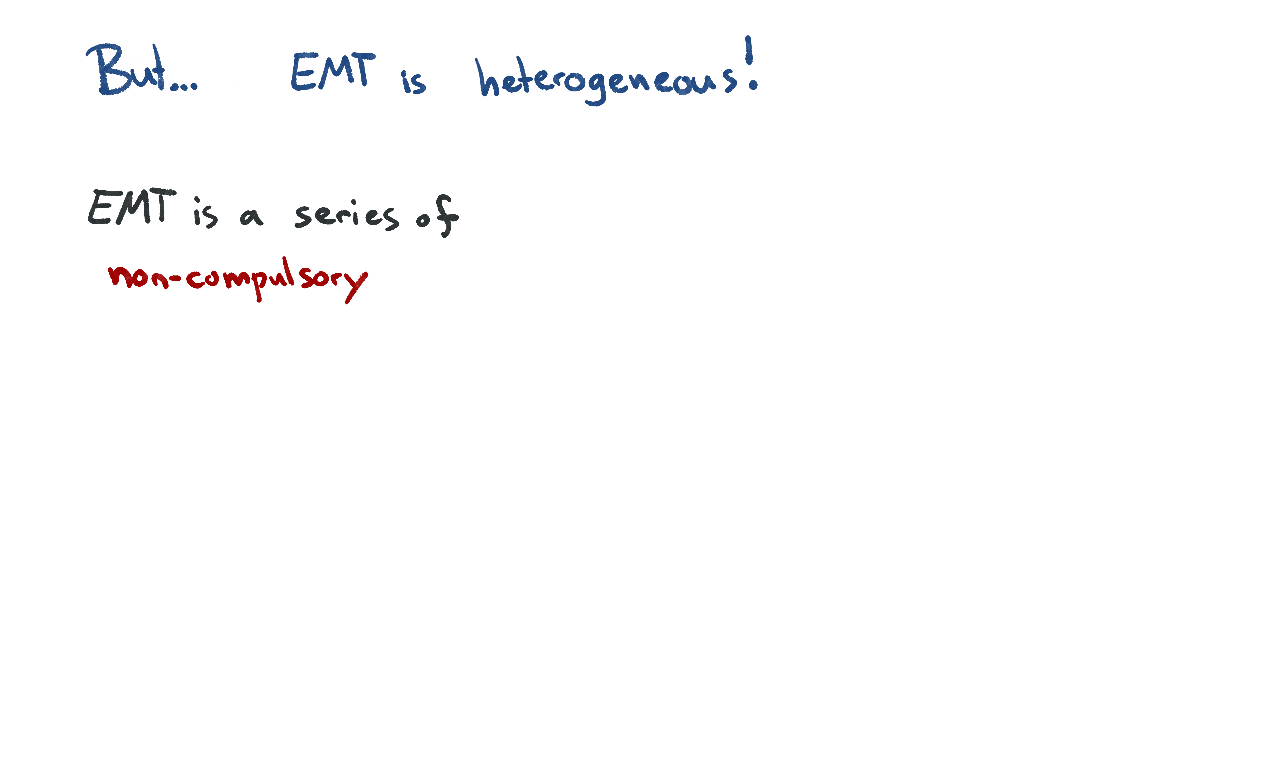 But... EMT is heterogeneous!
EMT is a series of
non-compulsory